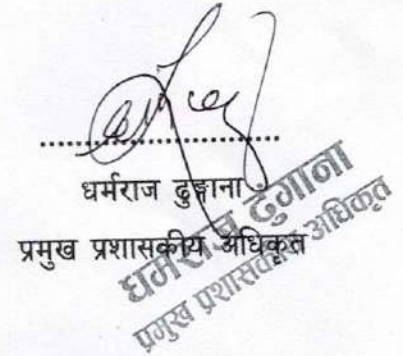 धर्मराज ढुङ्गाना
प्रमुख प्रशासकीय अधिकृत
धर्मराज ढुंगाना
प्रमुख प्रशासकीय अधिकृत